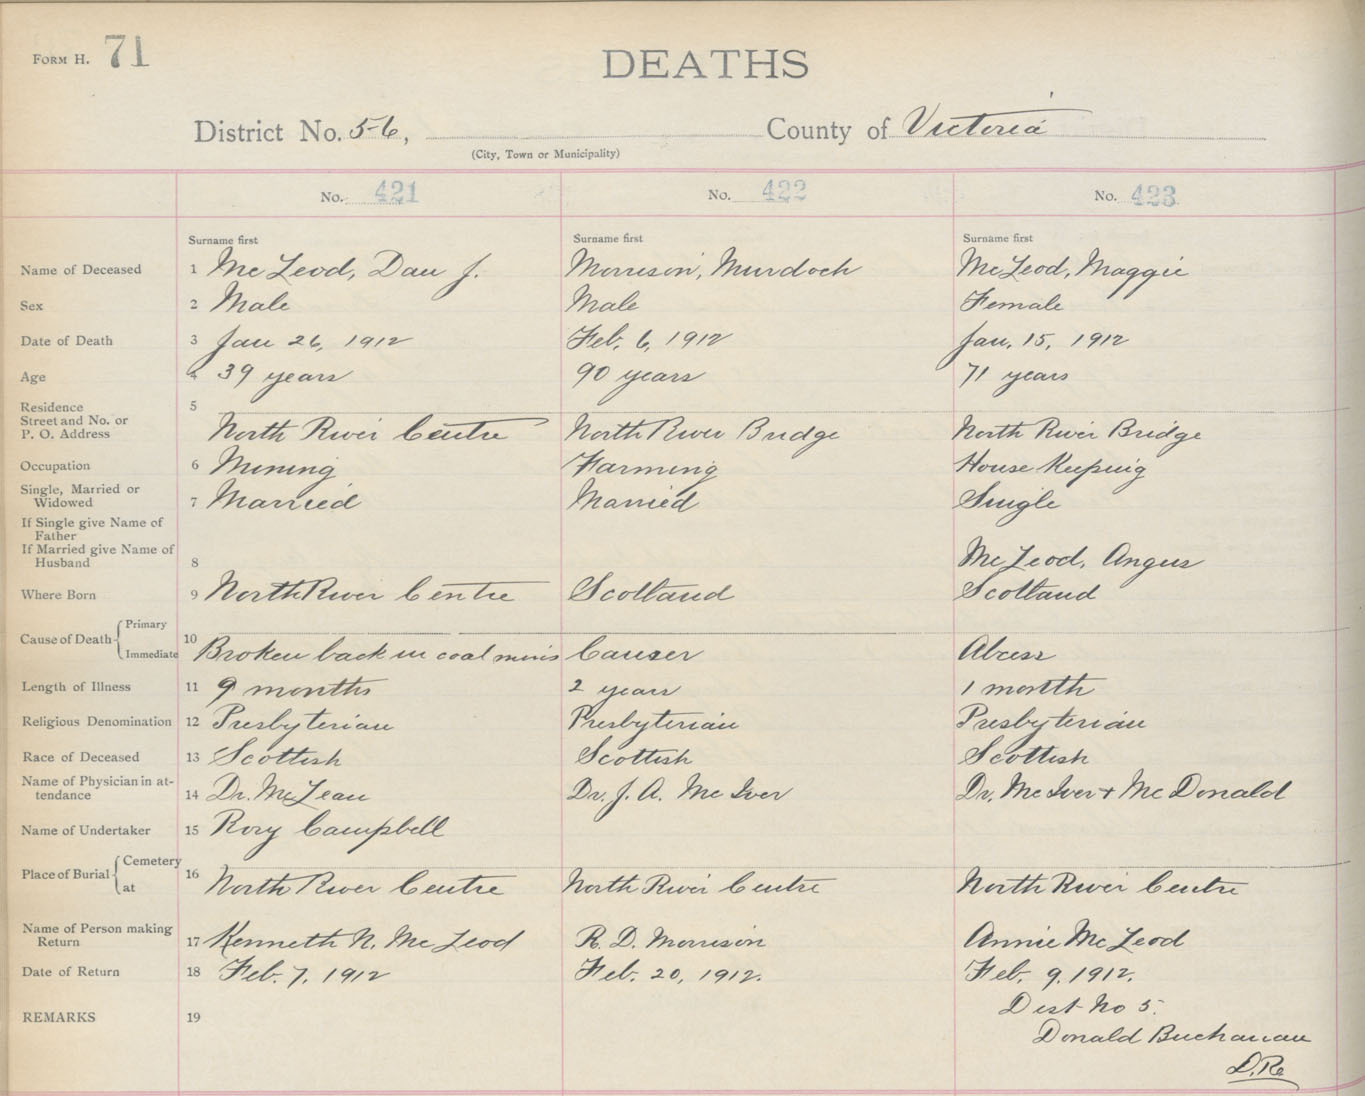 FORM H. 71
DEATHS
District No. 5-6, County of Victoria
(City, Town or Municipality)
No. 421 No. 422 No. 423
Surname first Surname first Surname first
Name of Deceased 1 McLeod, Dan J. Morrison, Murdoch McLeod, Maggie
Sex 2 Male Male Female
Date of Death 3 Jan 26, 1912 Feb. 6, 1912 Jan. 15, 1912
Age 4 39 years 90 years 71 years
Residence 5
Street and No. or
P. O. Address North River Centre North River Bridge North River Bridge
Occupation 6 Mining Farming House Keeping
Single, Married or
Widowed 7 Married Married Single
If Single give Name of
Father
If Married give Name of
Husband 8 McLeod, Angus
Where Born 9 North River Centre Scotland Scotland
Cause of Death Primary
10
Immediate Broken back in coal mines Cancer Abcess
Length of Illness 11 9 months 2 years 1 month
Religious Denomination 12 Presbyterian Presbyterian Presbyterian
Race of Deceased 13 Scottish Scottish Scottish
Name of Physician in at-
tendance 14 Dr. McLean Dr. J. A. McIver Dr. McIver + McDonald
Name of Undertaker 15 Rory Campbell
Place of Burial Cemetery
16
at North River Centre North River Centre North River Centre
Name of Person making
Return 17 Kenneth N. McLeod R. D. Morrison Annie McLeod
Date of Return 18 Feb. 7, 1912 Feb. 20, 1912. Feb. 9, 1912.
REMARKS 19 Dist No 5.
Donald Buchanan
D.R.